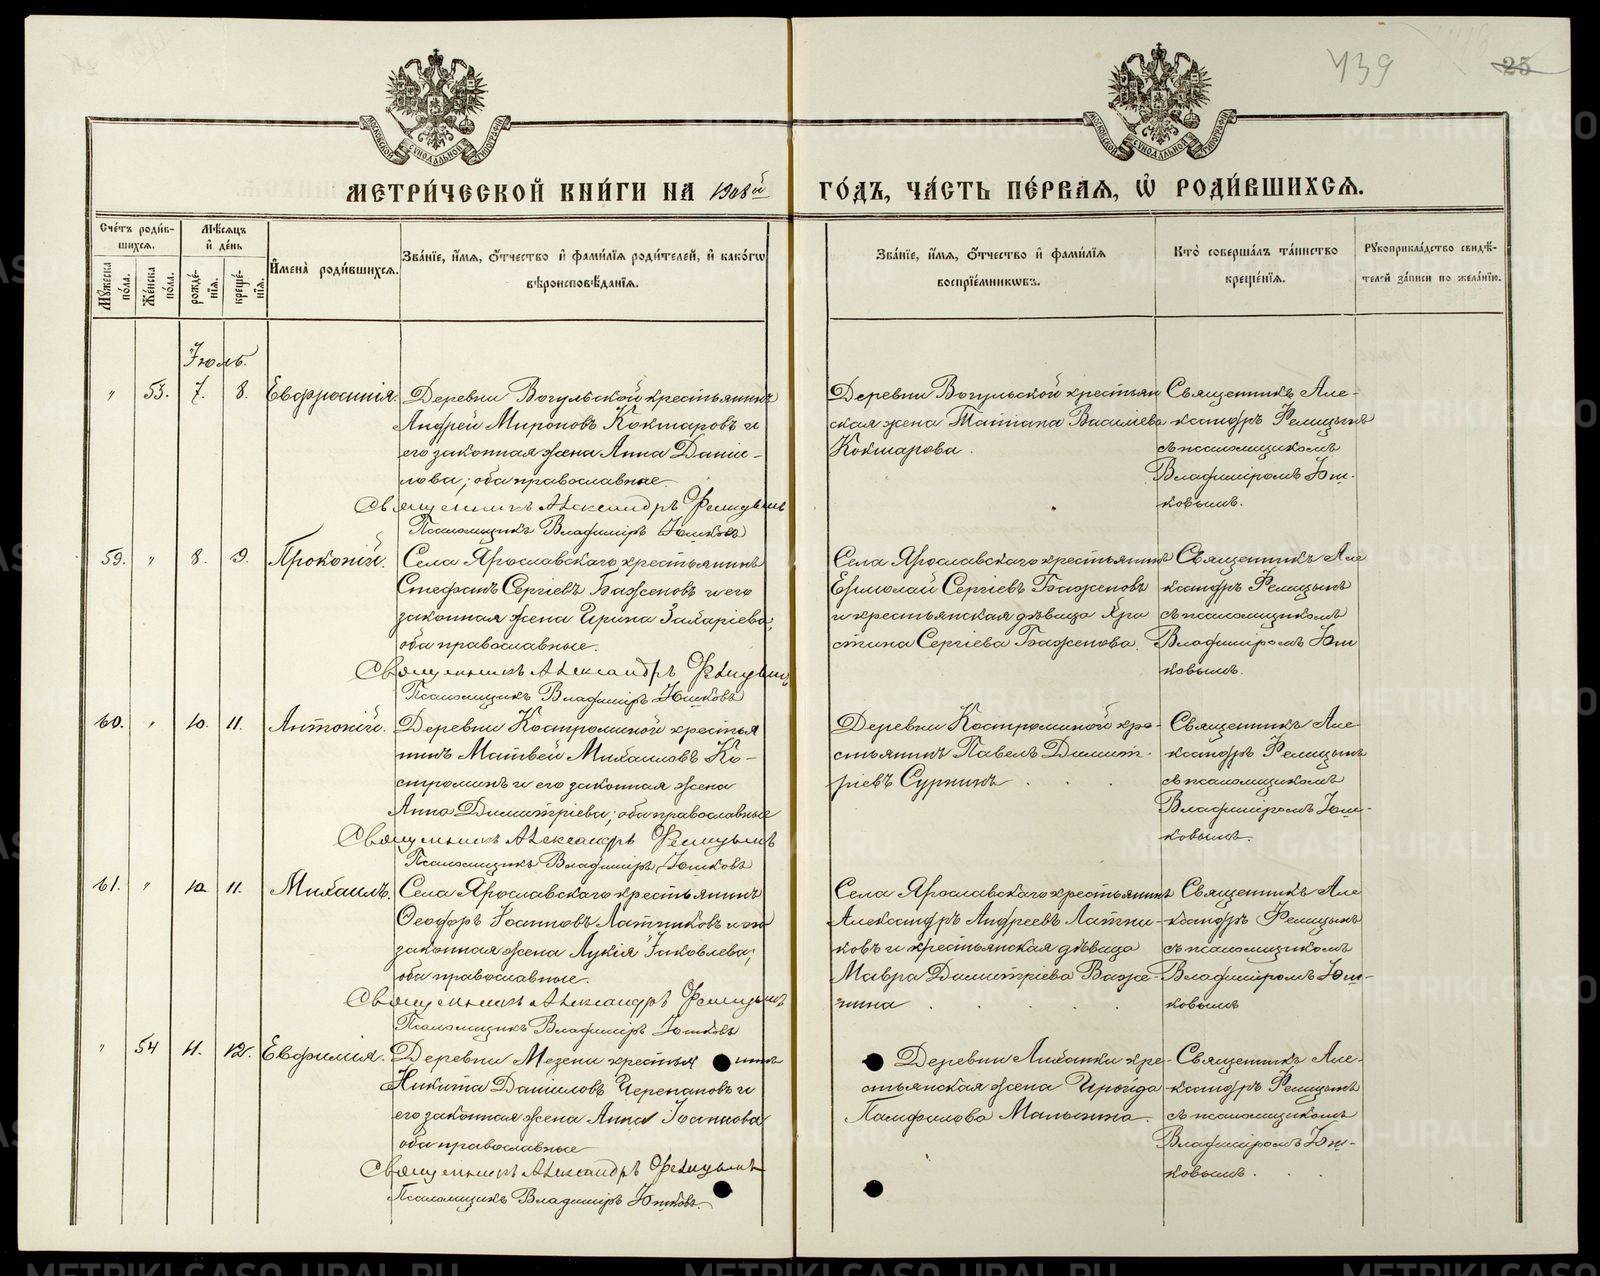 439
25
МОСКОВСКОЙ СѴНОДАЛЬНОЙ ТИПОГРАФІИ
МОСКОВСКОЙ СѴНОДАЛЬНОЙ ТИПОГРАФІИ
МЕТРИ́ЧЕСКОЙ КНИ́ГИ НА 1908й ГО́ДЪ, ЧА́СТЬ ПЕ́РВАѦ, Ѡ҆ РОДИ́ВШИХСѦ.
Сче́тъ роди́в-
шихсѧ.
Мѣ́сѧцъ
и҆ де́нь
Мꙋ́жеска по́ла.
Же́нска по́ла.
рожде́-
нїѧ.
креще́-
нїѧ.
И҆мена̀ роди́вшихсѧ.
Зва́нїе, и҆́мѧ, ѻ҆́тчество и҆ фами́лїѧ роди́телей, и҆ како́гѡ
вѣроисповѣ́данїѧ.
Зва́нїе, и҆́мѧ, ѻ҆́тчество и҆ фами́лїѧ
воспрїе́мникѡвъ.
Кто̀ соверша́лъ та́инство
креще́нїѧ.
Рꙋкоприкла́дство свидѣ́-
телей за́писи по жела́нїю.
Іюль.
" 53. 7. 8. Евфросинія.
Деревни Вогульской крестьянинъ
Андрей Мироновъ Кокшаровъ и
его законная жена Анна Дани-
лова; оба православные
Священникъ Александръ Фелицынъ
Псаломщикъ Владиміръ Юшковъ
Деревни Вогульской крестьян
ская жена Татіана Василіева
Кокшарова.
Священникъ Але-
ксандръ Фелицынъ
съ псаломщикомъ
Владиміромъ Юш-
ковымъ.
59. " 8. 9. Прокопій.
Села Ярославскаго крестьянинъ
Стефанъ Сергіевъ Баженовъ и его
законная жена Ирина Захаріева;
оба православные.
Священникъ Александръ Фелицынъ
Псаломщикъ Владиміръ Юшковъ
Села Ярославскаго крестьянинъ
Ермолай Сергіевъ Баженовъ
и крестьянская дѣвица Хри
стина Сергіева Баженова.
Священникъ Але
ксандръ Фелицынъ
съ псаломщикомъ
Владиміромъ Юш
ковымъ.
60. " 10. 11. Антоній.
Деревни Костроминой крестья
нинъ Матвей Михаиловъ Ко-
строминъ и его законная жена
Анна Димитріева; оба православные
Священникъ Александръ Фелицынъ
Псаломщикъ Владиміръ Юшковъ
Деревни Костроминой кре-
стьянинъ Павелъ Димит-
ріевъ Суринъ
Священникъ Але
ксандръ Фелицынъ
съ псаломщикомъ
Владиміромъ Юш-
ковымъ.
61. " 10. 11. Михаилъ.
Села Ярославскаго крестьянинъ
Ѳеодоръ Іоанновъ Латниковъ и его
законная жена Лукія Іаковлева;
оба православные.
Священникъ Александръ Фелицынъ
Псаломщикъ Владиміръ Юшковъ
Села Ярославскаго крестьянинъ
Александръ Андреевъ Латни-
ковъ и крестьянская дѣвица
Мавра Димитріева Важе-
нина
Священникъ Але
ксандръ Фелицынъ
съ псаломщикомъ
Владиміромъ Юш-
ковымъ
" 54 11. 12. Евфимія.
Деревни Мезени крестьянинъ
Никита Даніиловъ Черепановъ и
его законная жена Анна Іоаннова
оба православные
Священникъ Александръ Фелицынъ
Псаломщикъ Владиміръ Юшковъ.
Деревни Лиханки кре-
стьянская жена Ираида
Памфилова Малыгина.
Священникъ Але-
ксандръ Фелицынъ
съ псаломщикомъ
Владиміромъ Юш-
ковымъ.
METRIKI.GASO-URAL.RU